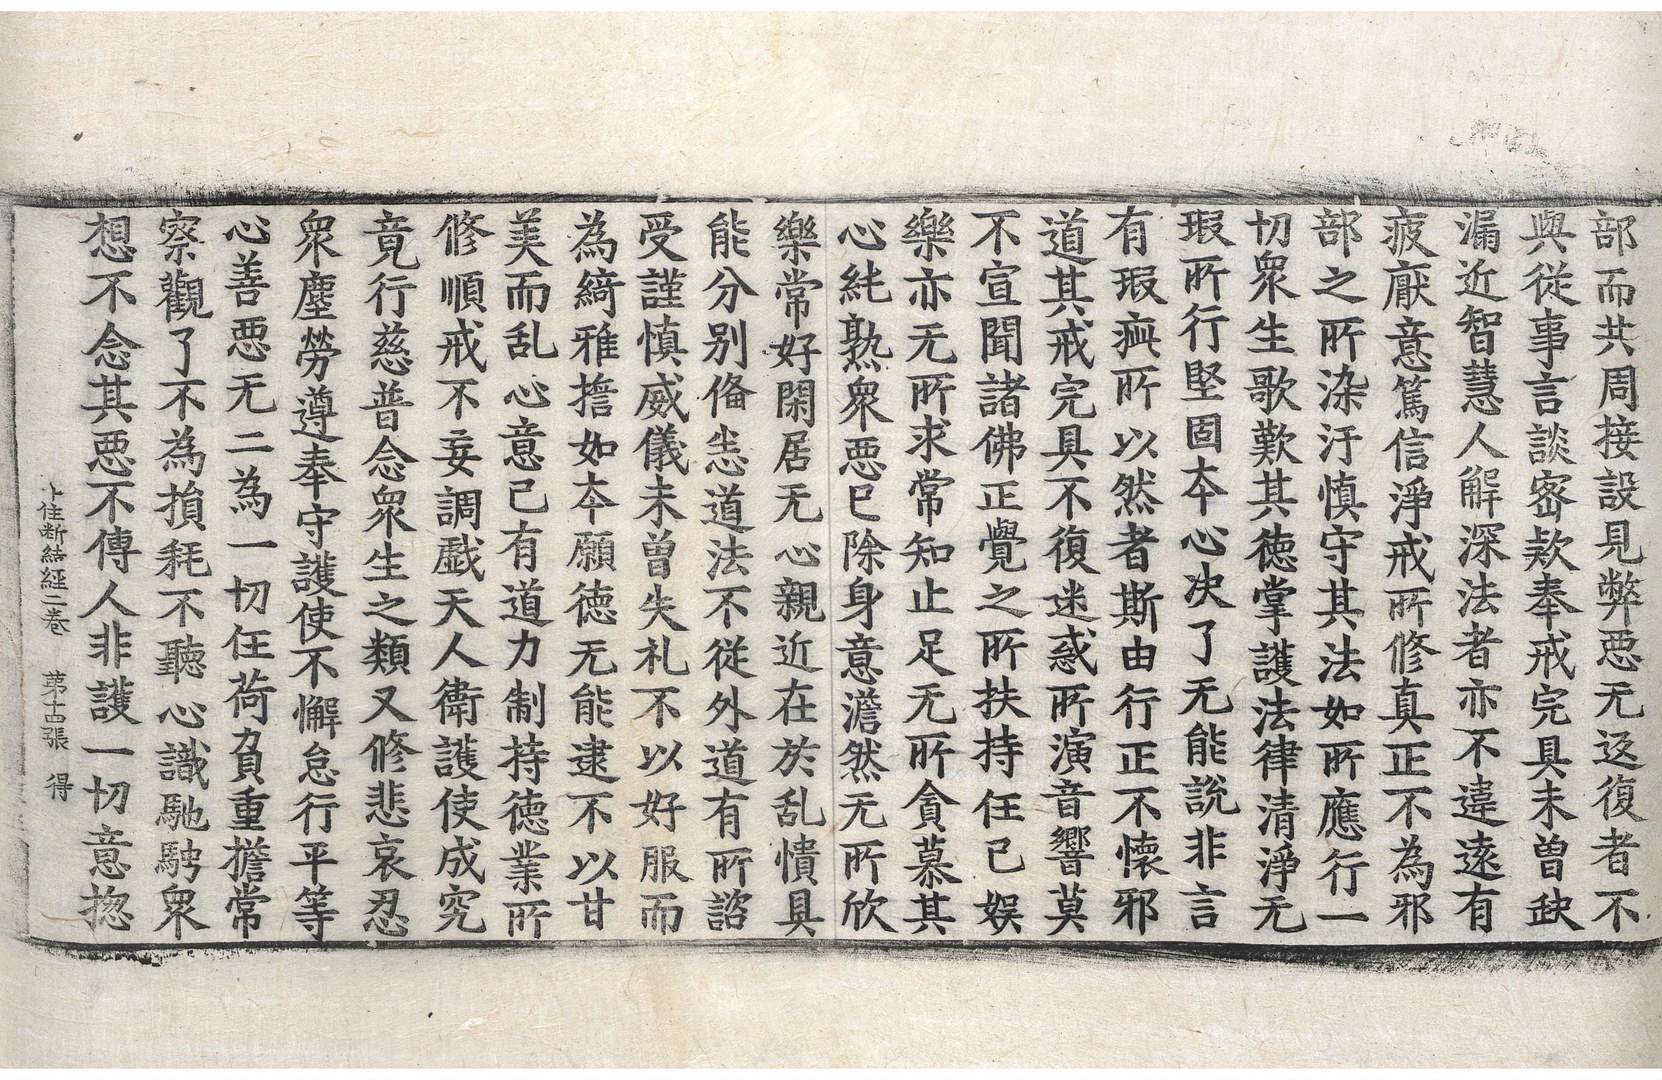 部而共周接設見弊惡无返復者不
與從事言談宻欵奉戒完具未曽缺
漏近智慧人解深法者亦不違遠有
疲猒意篤信淨戒所修真正不為邪
部之所染汙慎守其法如所應行一
切衆生歌歎其徳掌護法律清淨无
瑕所行堅固夲心决了无能說非言
有瑕疵所以然者斯由行正不懷邪
道其戒完具不復迷惑所演音響莫
不宣聞諸佛正覺之所扶持任已娱
樂亦无所求常知止足无所貪慕其
心純熟衆惡已除身意澹然无所欣
樂常好閑居无心親近在於乱憒具
能分别俻恙道法不從外道有所諮
受謹慎威儀未曽失礼不以好服而
為綺雅擔如夲願徳无能逮不以甘
美而乱心意已有道力制持徳業所
修順戒不妄調戲天人衛護使成究
竟行慈普念衆生之類又修悲哀忍
衆塵勞遵奉守護使不懈怠行平等
心善惡无二為一切任荷負重擔常
察觀了不為損耗不聽心識馳騁衆
想不念其惡不傳人非護一切意惚
十住断結経二卷 苐十四張 得